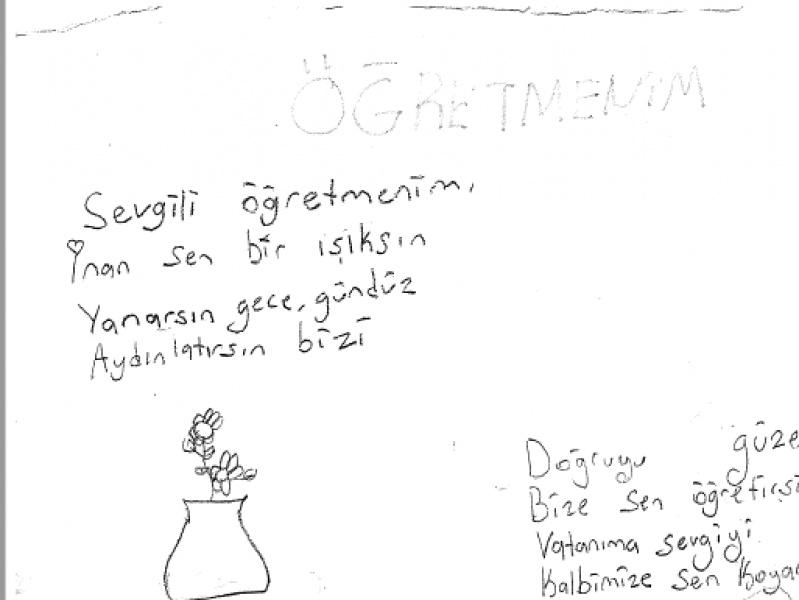 ÖĞRETMENİM
Sevgili öğretmenim,
İnan sen bir ışıksın
Yanarsın gece, gündüz
Aydınlatırsın bizi
Doğruyu güze
Bize sen öğretirsi
Vatanıma sevgiyi
Kalbimize sen koyar